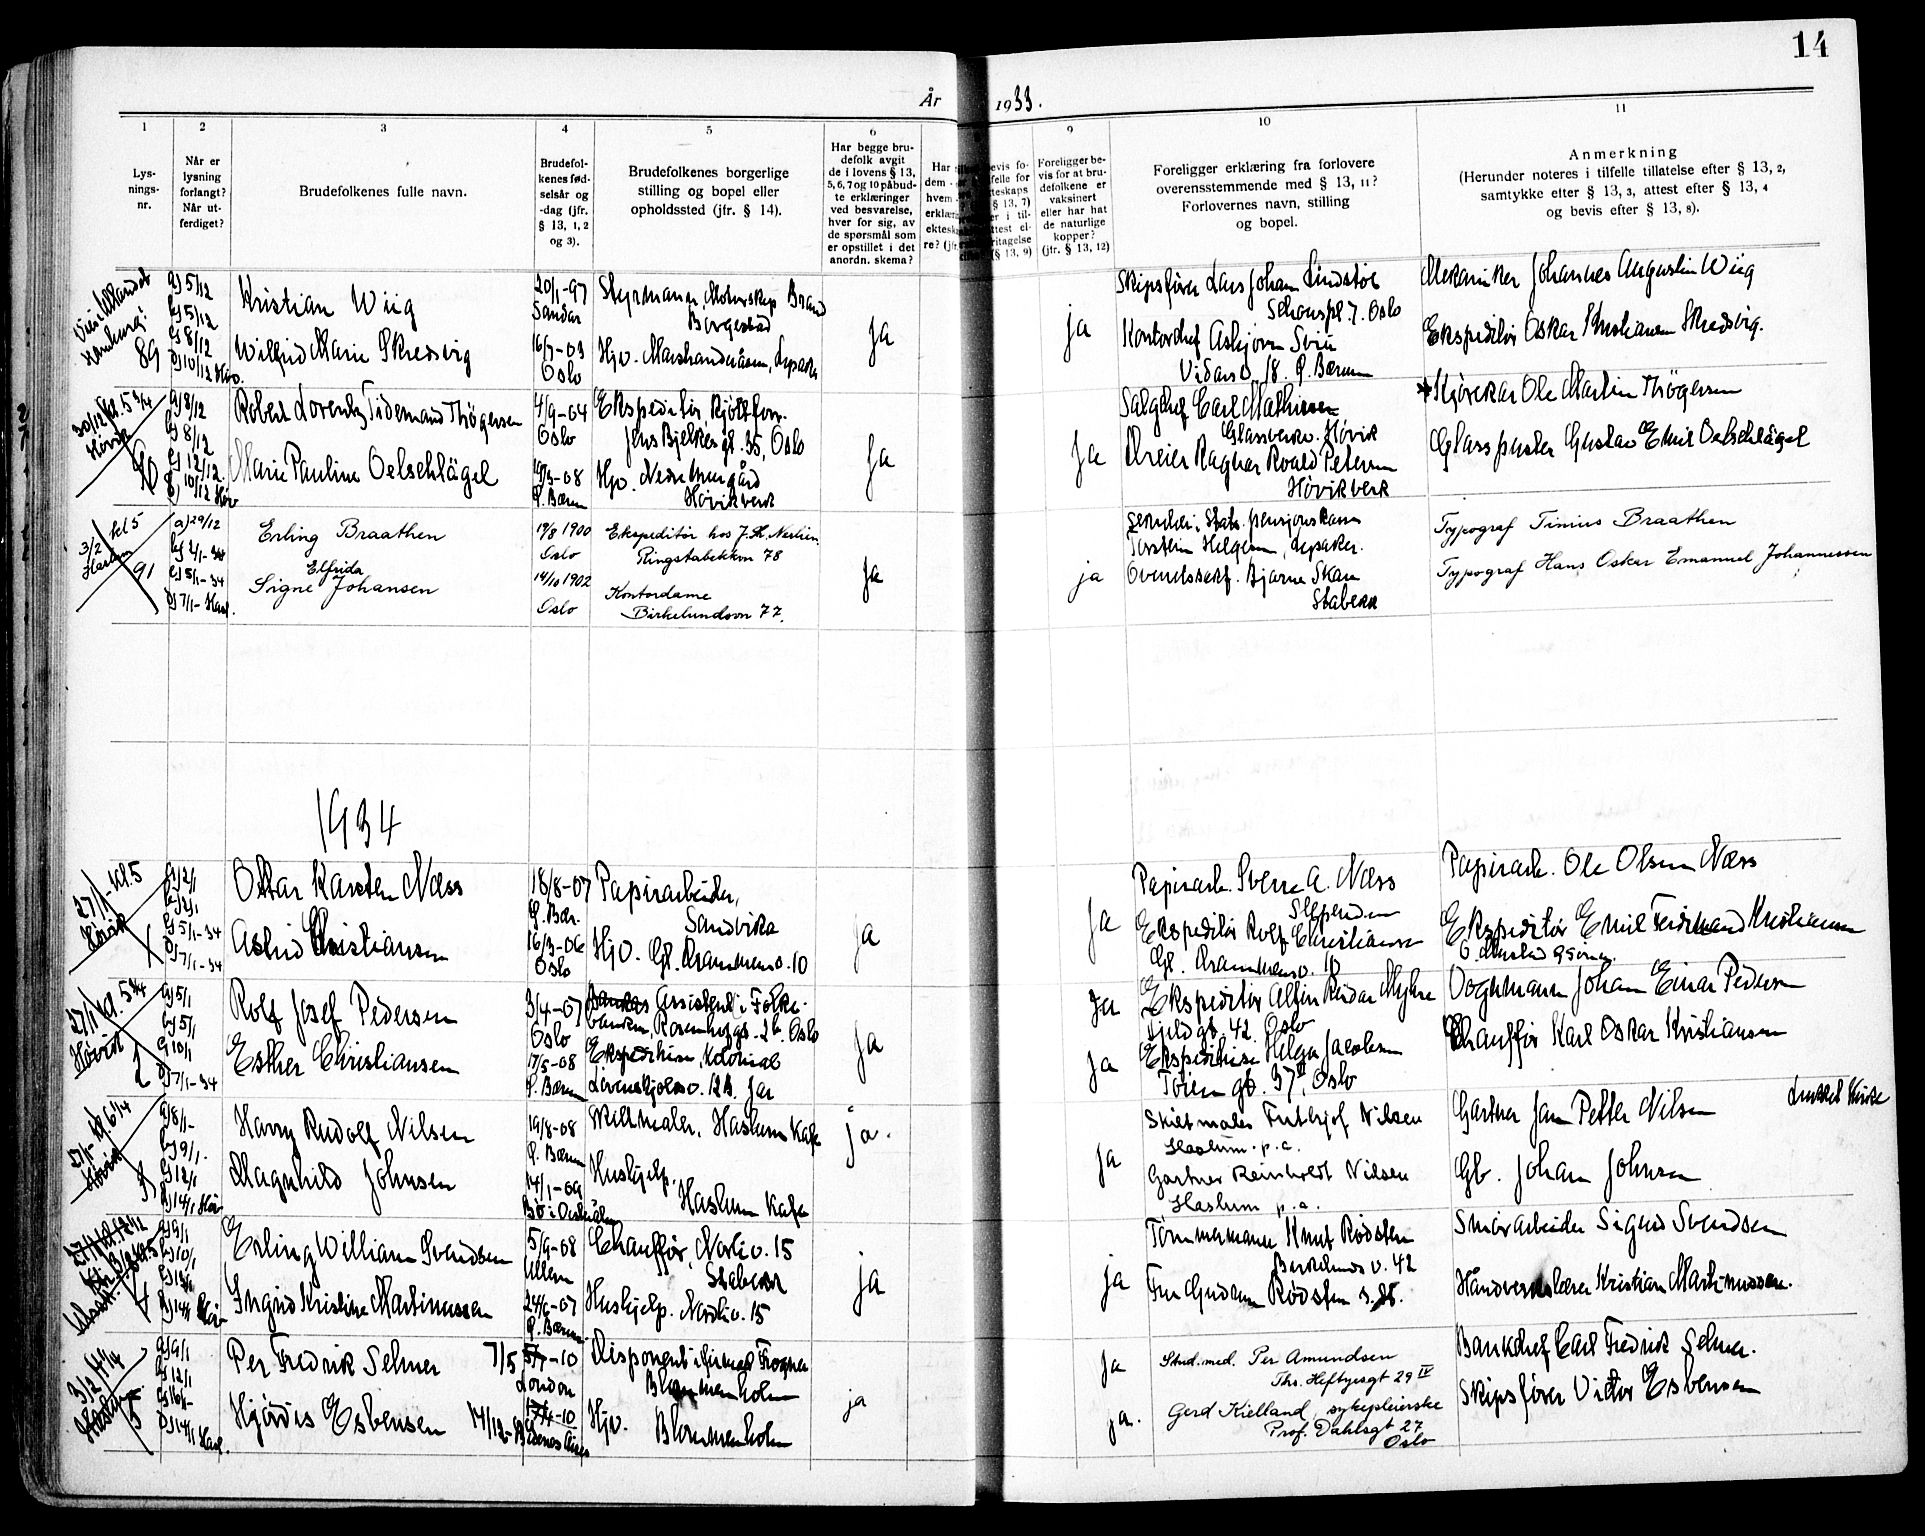 14
År 1933.
1
2
3
4
5
6
9
10
11
Lys-
nings-
nr.
Når er
lysning
forlangt?
Når ut-
ferdiget?
Brudefolkenes fulle navn.
Brudefol-
kenes fød-
selsår og
-dag (jfr.
§ 13, 1, 2
og 3).
Brudefolkenes borgerlige
stilling og bopel eller
opholdssted (jfr. § 14).
Har begge bru-
defolk avgit
de i lovens § 13,
5, 6, 7 og 10 påbud-
te erklæringer
ved besvarelse,
hver for sig, av
de spørsmål som
er opstillet i det
anordn. skema?
Foreligger be-
vis for at bru-
defolkene er
vaksinert
eller har hat
de naturlige
kopper?
(jfr. § 13, 12)
Foreligger erklæring fra forlovere
overensstemmende med § 13, 11?
Forlovernes navn, stilling
og bopel.
Anmerkning
(Herunder noteres i tilfelle tillatelse efter § 13, 2,
samtykke efter § 13, 3, attest efter § 13, 4
og bevis efter § 13, 8).
89
a) 5/12
b) 5/12
c) 8/12
d) 10/12 Høv.
Kristian Wiig
Wilfrid Marie Skredsvig
20/1-97
Sandar
16/7-03
Oslo
Styrmann, Motorskip Brand
Borgestad
Hjv.
Ja
ja
Skipsfører Lars Johan Lindstøl
Schouspl. 7. Oslo
Kontorchef Asbjørn
Vidarsv. 18. Ø. Bærum
Mekaniker Johannes Augustin Wiig
Ekspeditør Oskar Kristiansen Skredsvig.
30/12 kl. 5 3/4
Høvik
90
a) 8/12
b) 8/12
c) 12/12
d) 10/12 Høv
Robert Lorentz Tidemand Thøgersen
Marie Pauline Oelschlägel
4/9-04
Oslo
19/3-08
Ø. Bærum
Ekspeditør
Jens Bjelkes gt. 35, Oslo
Hjv. Nedre Murgård
Høvikverk
Ja
Ja
Salgchef Carl Mathiesen
Glassverkv. Høvik
Dreier Ragnar Roald Petersen
Høvikverk
Kjørekar Ole Martin Thøgersen
Glasspuster Gustav Emil Oelschlägel
3/2 kl 5
Haslum
91
a) 29/12
b) 2/1-34
c) 5/1-34
d) 7/1- Hasl.
Erling Braathen
Elfrida
Signe Johansen
19/8 1900
Oslo
14/10 1902
Oslo
Ekspeditør hos J. H.
Ringstabekkvn 78
Kontordame
Birkelundsvn 77.
Ja
ja
Sekretær i Stat. pensjonskasse
Torstein Helgesen, Lysaker.
Bjarne Skau
Stabekk
Typograf Tinius Braathen
Typograf Hans Oskar Emanuel Johannessen
1934
27/1 - kl. 5
Høvik
1
a) 2/1
b) 2/1
c) 5/1-34
d) 7/1-34
Ottar Karsten Næss
Astrid Christiansen
18/8-07
Ø. Bær.
16/3-06
Oslo
Papirarbeider,
Sandvika
Hjv. Gl. Drammensv. 10
Ja
Ja
Papirarb. Sverre A. Næss
Slependen
Ekspeditør Rolf Christiansen
Gl. Drammensv. 10
Papirarb. Ole Olsen Næss
Ekspeditør Emil Ferdinand Kristiansen
O. Mustad & Sønn.
27/1 kl. 5 3/4
Høvik
2
a) 5/1
b) 5/1
c) 10/1
d) 7/1-34
Rolf Josef Pedersen
Esther Christiansen
3/4-07
Oslo
17/5-08
Ø. Bærum
Assistent i Folke-
banken, Rosenhofgt. 2b. Oslo
Ekspeditrise, Kolonial
Løvenskjoldsv. 12b. Jar
Ja
Ja
Ja
Ekspeditør Alfin Reidar Myhre
42. Oslo
Ekspeditrise Helga Jacobsen
Tøien gt. 37 II, Oslo
Vognmann Johan Einar Pedersen
Chauffør Karl Oskar Kristiansen
27/1- kl 6 1/4
Høvik
3
a) 8/1-
b) 9/1.
c) 12/1
d) 14/1 Høv
Harry Rudolf Nilsen
Magnhild Johnsen
19/8-08
Ø. Bærum
14/1-09
Skiltmaler, Haslum Kafe
Hushjelp,
Haslum Kafe
ja.
Ja
Skiltmaler Frithjof Nilsen
Haslum. p.a.
Gartner Reinholdt Nilsen
Haslum p.a.
Gartner Jan Petter Nilsen
Gb. Johan Johnsen
4
a) 9/1
b) 10/1
c) 13/1
d) 14/1 Høv
Erling William Svendsen
Ingrid Kristine Martinussen
5/9-08
Ullern
24/6-07
Ø. Bærum
Chauffør, Norliv. 15
Stabekk
Hushjelp. Norliv. 15
ja
ja
Tømmermann Knut Rødsten
Berkelunds v. 42
Fru Gudrun Rødsten s. st.
Smørarbeider Sigurd Svendsen
Håndverkslærer Kristian Martinussen.
3/2 kl 4 1/4
Haslum
5
a) 9/1
b) 12/1
c) 16/1-
d) 14/1 Hasl.
Per Fredrik Selmer
Hjørdis Esbensen
7/5
5/7-10
London
17/12-
17/4-10
Buenos Aires
Disponent i firmaet Frogner
Blommenholm
Hjv. Blommenholm
ja
Ja
ja.
Stud. med. Per Amundsen
Ths. Heftyesgt 29 IV
Gerd Kielland, sykepleierske
Prof. Dahlsgt 27
Oslo
Bankchef Carl Fredrik Selmer.
Skipsfører Victor Esbensen